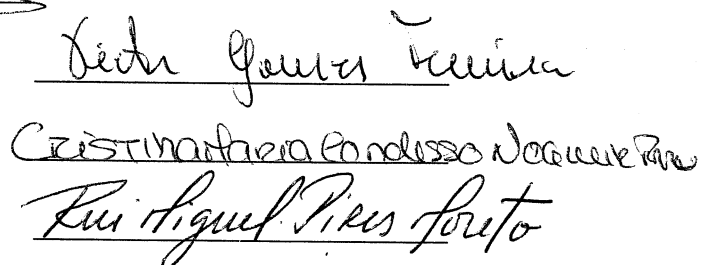 Victor Gomes Ferreira
Cristina Maria Condesso Nogueira
Rui Miguel Pires Loreto